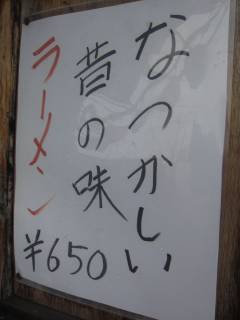 なつかしい
昔の味
ラーメン
¥650